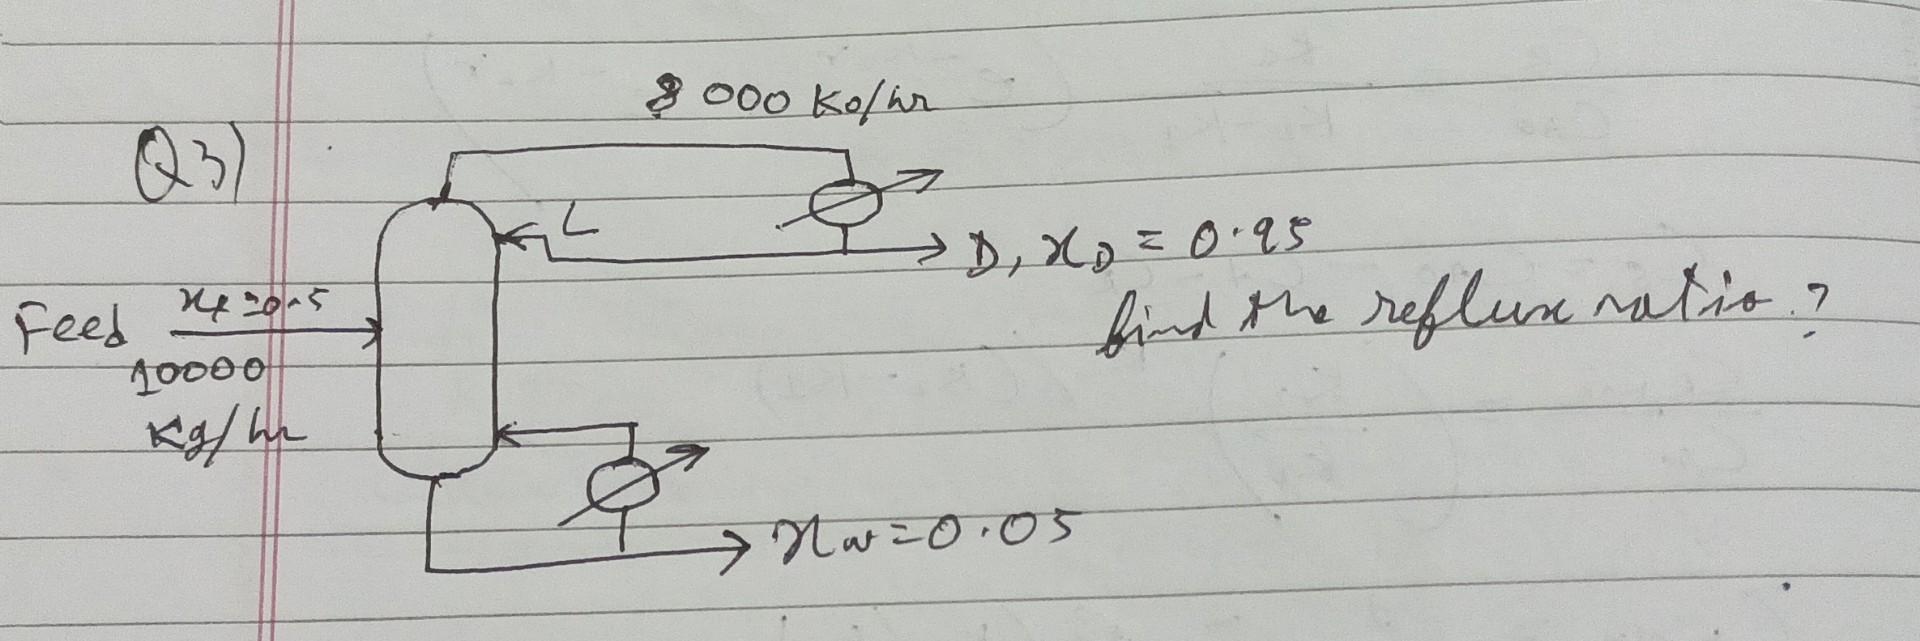 8 000 Kg/hr
Q3)
L
D, xD = 0.95
Feed xF=0.5
find the reflux ratio?
10000
Kg/hr
xw=0.05